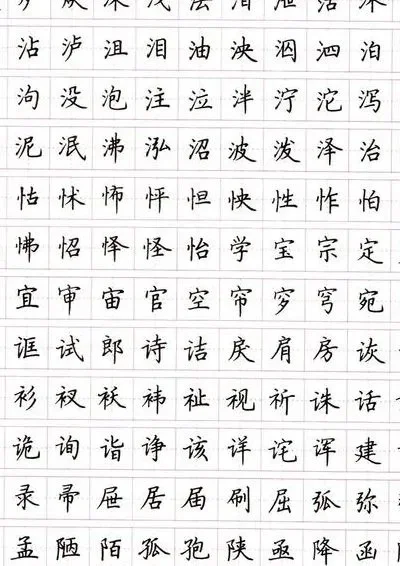 沾 泸 沮 泪 油 泱 泅 泗 泊
泃 没 泡 注 泣 泮 泞 沱 泻
泥 泯 沸 泓 沼 波 泼 泽 治
怙 怵 怖 怦 怛 怏 性 怍 怕
怫 怊 怿 怪 怡 学 宝 宗 定
宜 审 宙 官 空 帘 穸 穹 宛
诓 试 郎 诗 诘 戾 肩 房 诙
衫 衩 袄 祎 祉 视 祈 诛 话
诡 询 诣 诤 该 详 诧 诨 建
录 帚 屉 居 届 刷 屈 弧 弥
孟 陋 陌 孤 孢 陕 亟 降 函